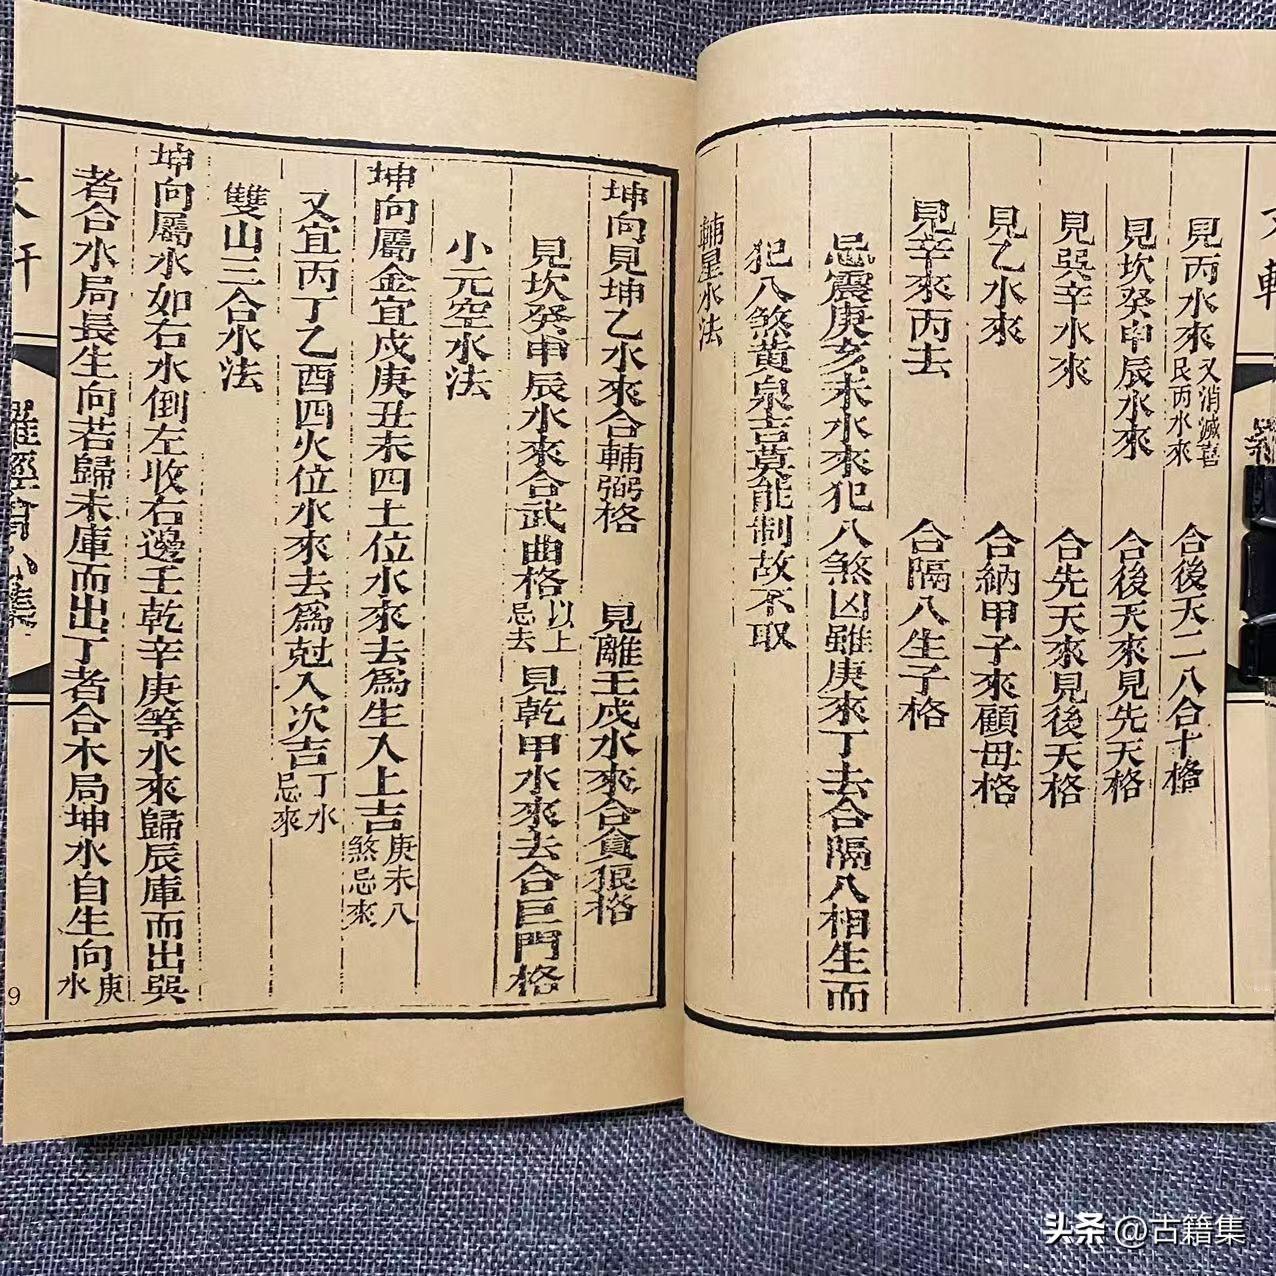 見丙水來又消滅喜艮丙水來 合後天二八合十格
見坎癸申辰水來 合後天來見先天格
見巽辛水來 合先天來見後天格
見乙水來 合納甲子來顧母格
見辛來丙去 合隔八生子格
忌震庚亥未水來犯八煞凶雖庚來丁去合隔八相生而
犯八煞黄泉吉莫能制故不取
輔星水法
坤向見坤乙水來合輔弼格 見離壬戌水來合貪狼格
見坎癸申辰水來合武曲格以上忌去 見乾甲水來去合巨門格
小元空水法
坤向屬金宜戍庚丑未四土位水來去爲生入上吉庚未八煞忌來
又宜丙丁乙酉四火位水來去爲尅入次吉丁水忌來
雙山三合水法
坤向屬水如右水倒左收右邊壬乾辛庚等水來歸辰庫而出巽
者合水局長生向若歸未庫而出丁者合木局坤水自生向庚水
羅經
9
头条 @古籍集